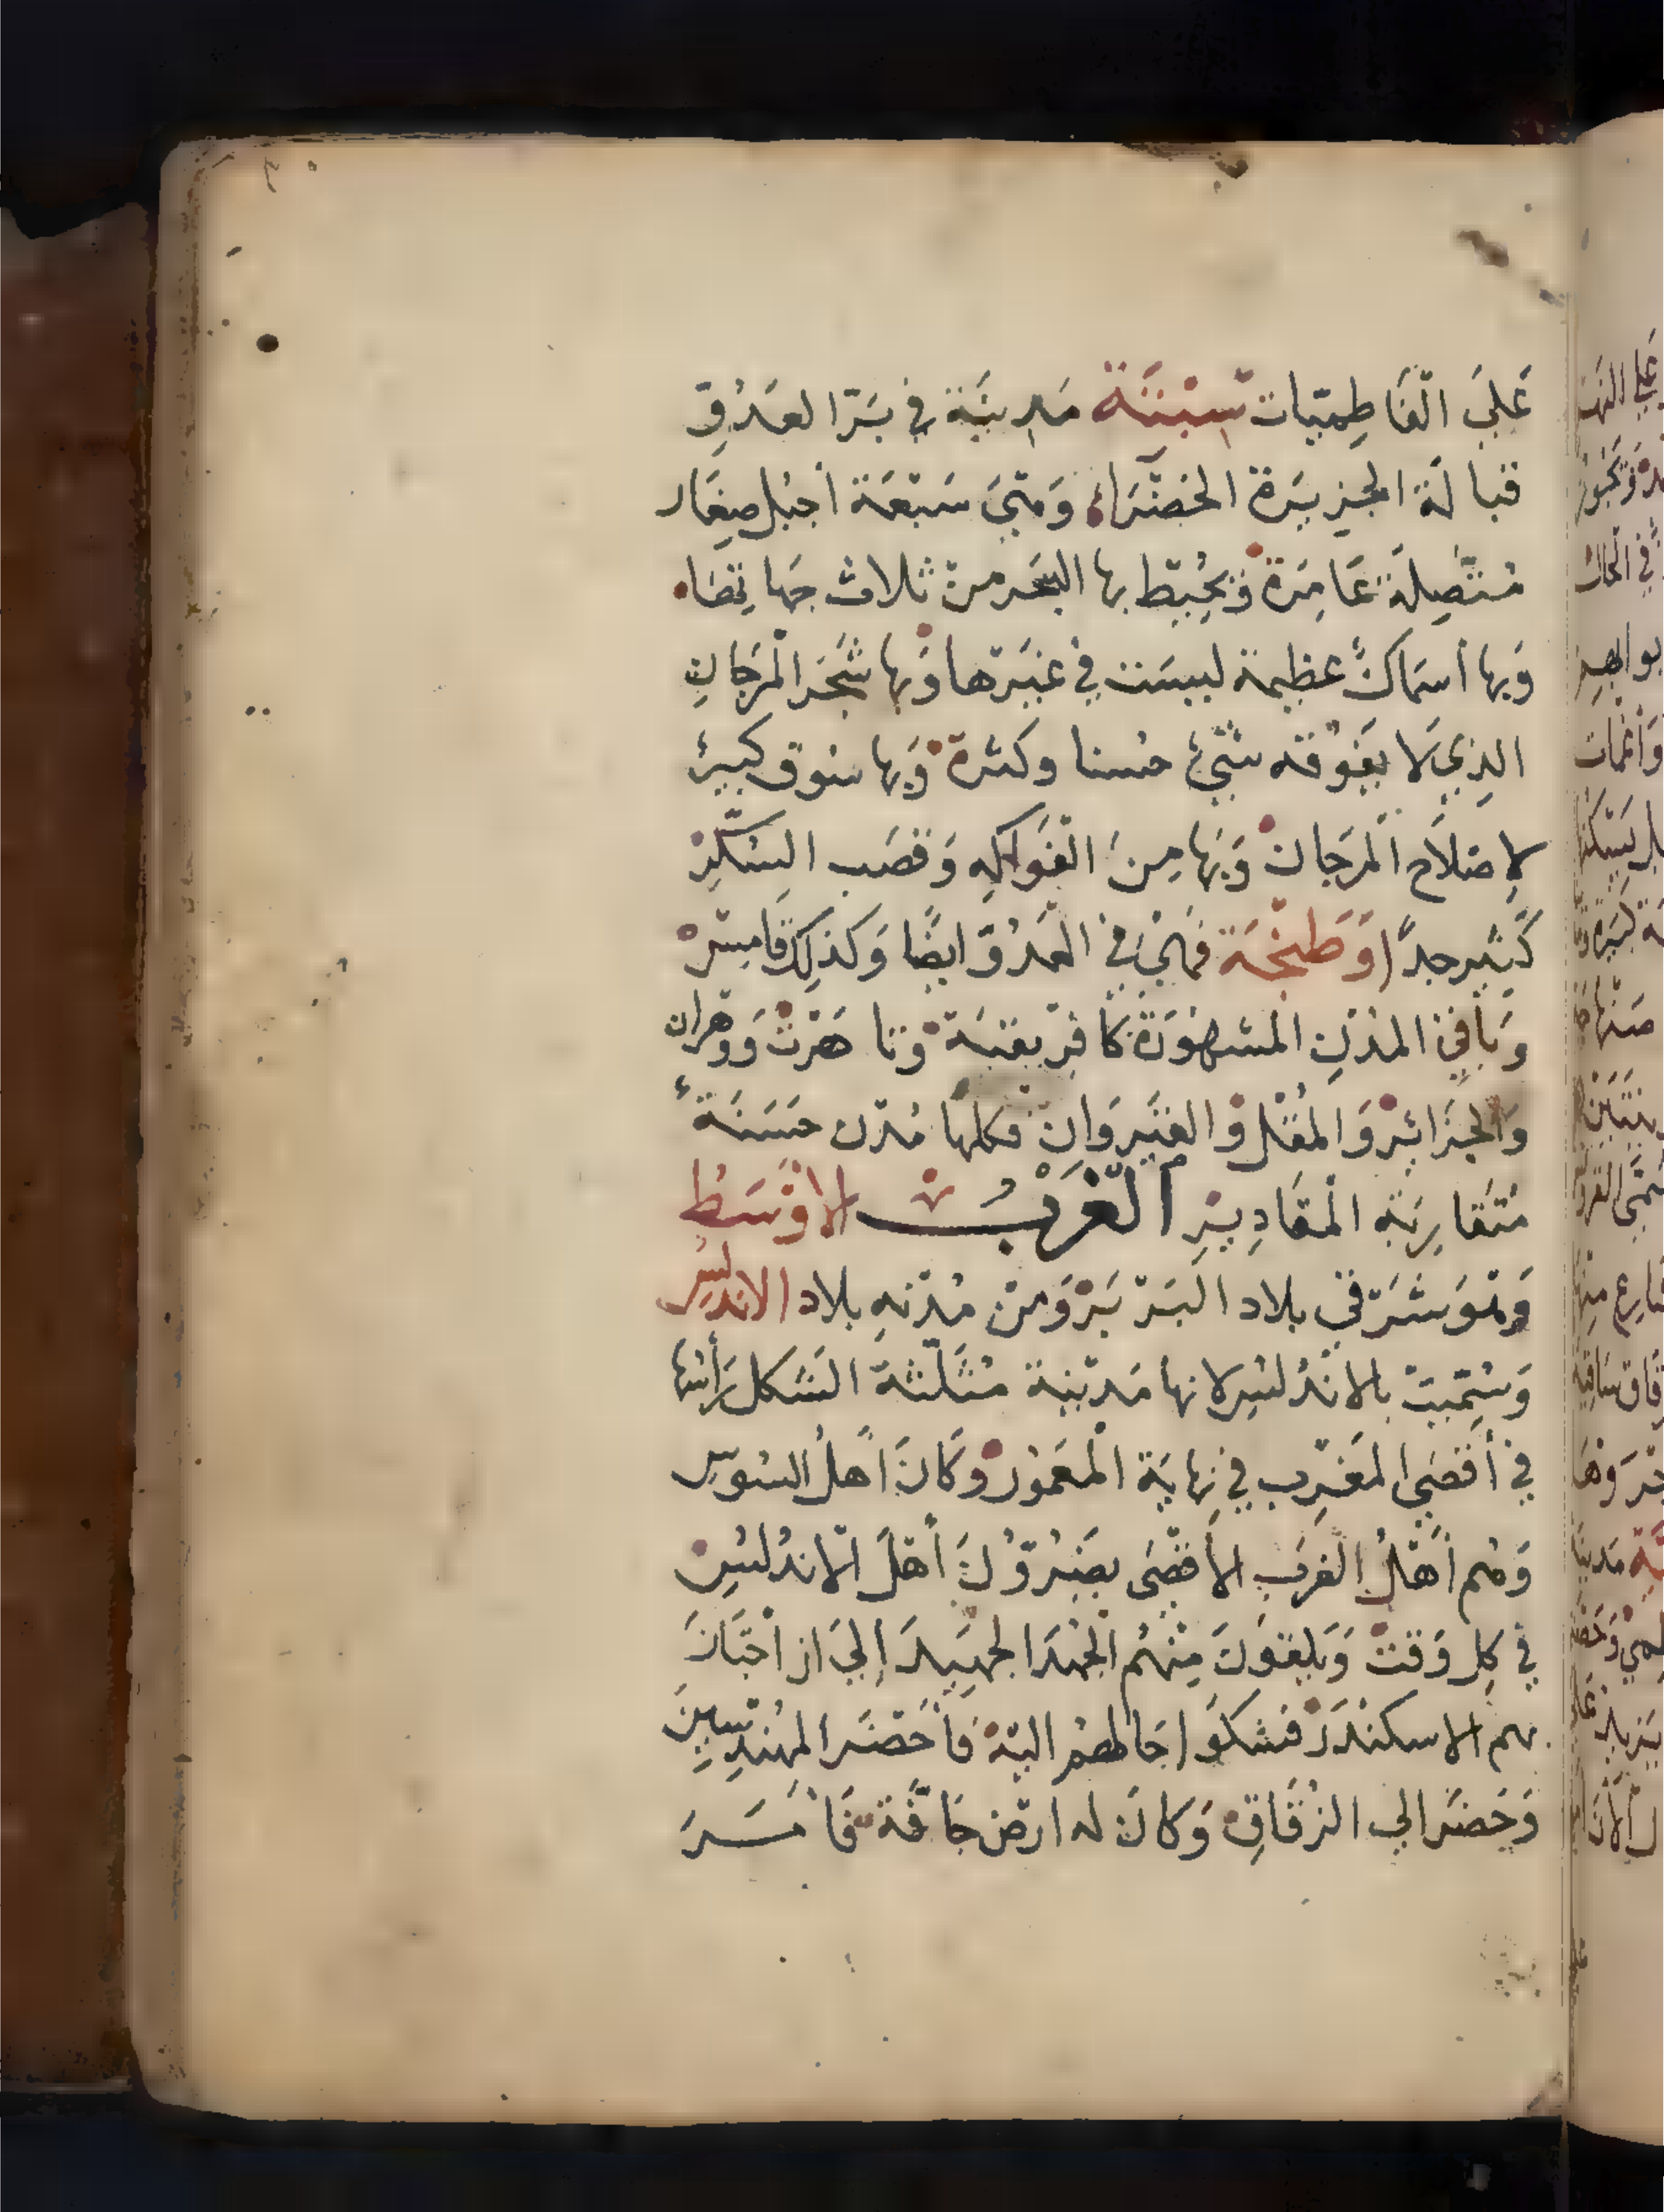 عَلَى الفَاطِمِيّات سبتَة مَدينَة في بَرّ العَدُوِّ
قبالة الجزيرَة الخضرَاء وَهيَ سَبعَة أجبُل صِغَار
مُتّصِلَة عَامِرَة وَيُحِيط بها البَحر من ثلاث جهاتِهَا
وَبها أسمَاكٌ عظيمة ليسَت في غيرَها وَبها شَجَر المَرجَانِ
الذي لَا يَفُوقُه شيءٌ حُسنا وكثرة وَبها سُوق كبيرٌ
لإصلَاح المرجَان وَبهَا مِنَ الفَوَاكِهِ وَقصَب السُّكّر
كَثير جدًّا وَطنجَة فَهي في العَدُوّ ايضًا وَكذلِكَ فَاس
وَبَاقي المُدُنِ المشهُورَة كَافريقيَة وتاهَرْت وَوَهران
وَالجَزائر وَالمُغُل وَالقَيرَوَان فكلها مُدُن حَسَنَة
مُتَقَارِبَة المقَادِير الغَرْبُ الأَوْسَطُ
وَهوَ شَرقي بلاد البَربَر وَمن مُدنهِ بلاد الاندلس
وَسُمّيت بالاندُلسِ لانها مَدينة مُثَلّثة الشَكل رَأسُها
في أقصَى المَغرِب في نِهايَة المَعمُور وَكَانَ أهلُ السُوس
وَهُم أهلُ الغَرب الأَقصَى يَضُرُّونَ أهلَ الأندُلسِ
في كلِ وَقت وَيلقَونَ مِنهُم الجُهدَ الجَهِيدَ إلَى ان اجتَازَ
بهم الاسكندَر فشكَوا حَالهُم اليهِ فَأَحضَر المهندِسينَ
وَحَضَر الي الزقَاقِ وَكانَ له ارض جَافَّة فَامَرَ